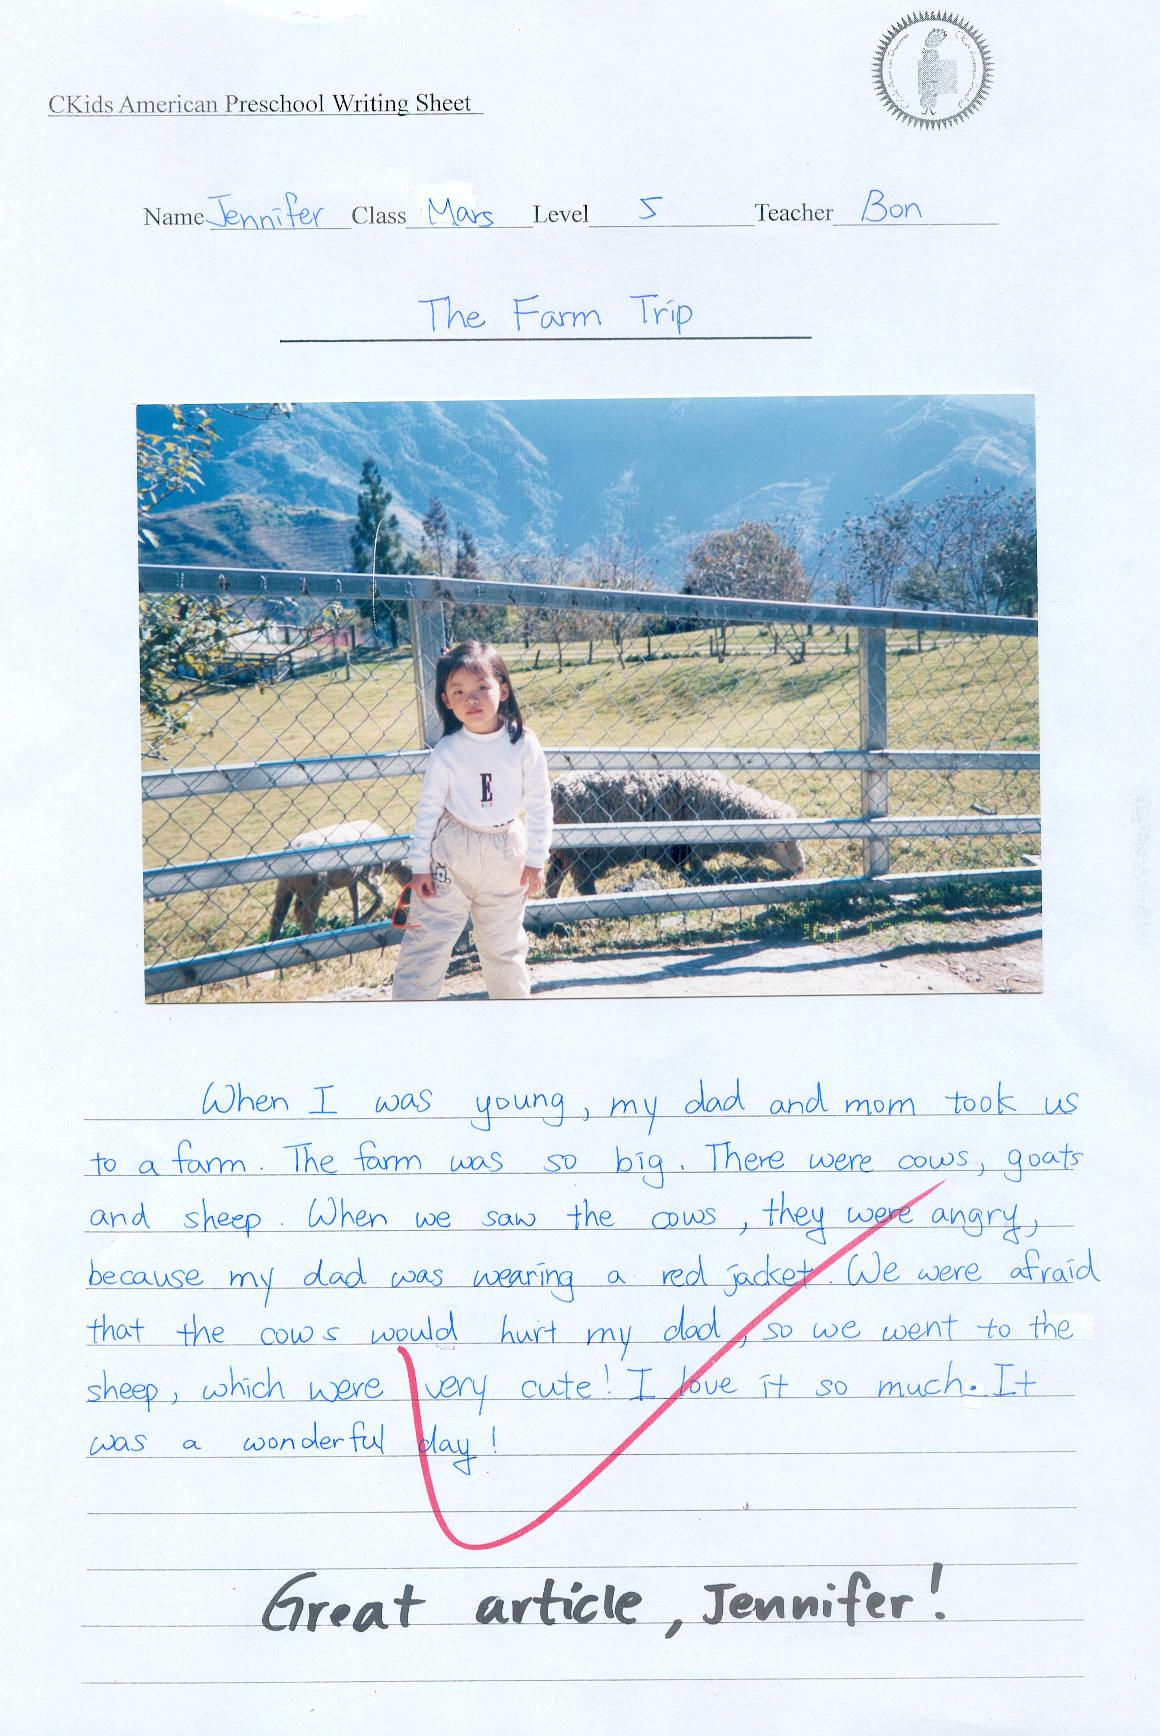 CKids American Preschool Writing Sheet
Name Jennifer Class Mars Level 5 Teacher Bon
The Farm Trip
E
When I was young, my dad and mom took us
to a farm. The farm was so big. There were cows, goats
and sheep. When we saw the cows, they were angry,
because my dad was wearing a red jacket. We were afraid
that the cows would hurt my dad, so we went to the
sheep, which were very cute! I love it so much. It
was a wonderful day!
Great article, Jennifer!